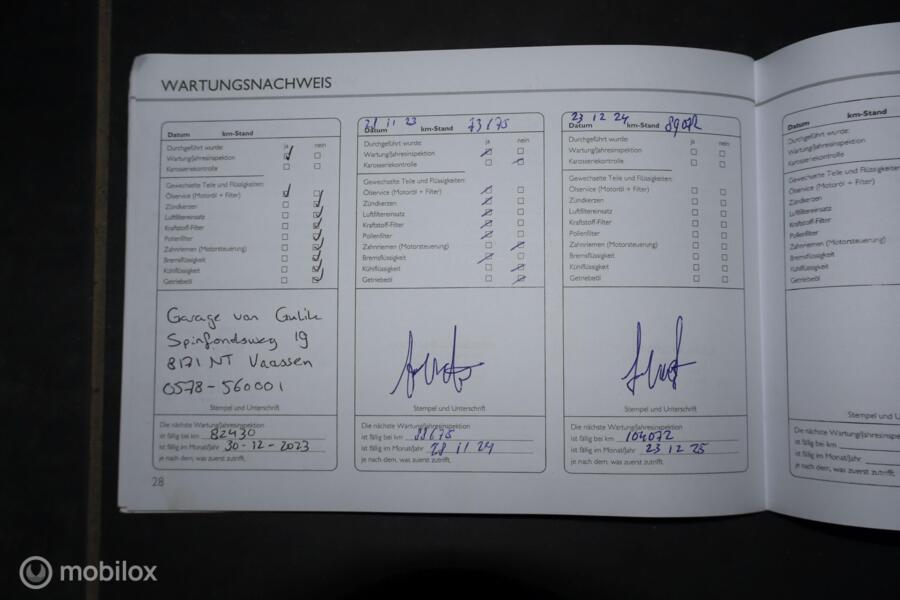 WARTUNGSNACHWEIS
Datum km-Stand
Durchgeführt wurde: ja nein
Wartung/Jahresinspektion
Karosseriekontrolle
Gewechselte Teile und Flüssigkeiten:
Ölservice (Motoröl + Filter)
Zündkerzen
Luftfiltereinsatz
Kraftstoff-Filter
Pollenfilter
Zahnriemen (Motorsteuerung)
Bremsflüssigkeit
Kühlflüssigkeit
Getriebeöl
Garage van Gulik
Spinfondsweg 19
8171 NT Vaassen
0578-560001
Stempel und Unterschrift
Die nächste Wartung/Jahresinspektion
ist fällig bei km 82430
ist fällig im Monat/Jahr 30-12-2023
je nach dem, was zuerst zutrifft.
28
28 11 23 73675
Datum km-Stand
Durchgeführt wurde: ja nein
Wartung/Jahresinspektion
Karosseriekontrolle
Gewechselte Teile und Flüssigkeiten:
Ölservice (Motoröl + Filter)
Zündkerzen
Luftfiltereinsatz
Kraftstoff-Filter
Pollenfilter
Zahnriemen (Motorsteuerung)
Bremsflüssigkeit
Kühlflüssigkeit
Getriebeöl
Stempel und Unterschrift
Die nächste Wartung/Jahresinspektion
ist fällig bei km 88675
ist fällig im Monat/Jahr 28 11 24
je nach dem, was zuerst zutrifft.
23 12 24
Datum km-Stand 89072
Durchgeführt wurde: ja nein
Wartung/Jahresinspektion
Karosseriekontrolle
Gewechselte Teile und Flüssigkeiten:
Ölservice (Motoröl + Filter)
Zündkerzen
Luftfiltereinsatz
Kraftstoff-Filter
Pollenfilter
Zahnriemen (Motorsteuerung)
Bremsflüssigkeit
Kühlflüssigkeit
Getriebeöl
Stempel und Unterschrift
Die nächste Wartung/Jahresinspektion
ist fällig bei km 104072
ist fällig im Monat/Jahr 23 12 25
je nach dem, was zuerst zutrifft.
Datum km-Stand
Durchgeführt wurde:
Wartung/Jahresinspektion
Karosseriekontrolle
Gewechselte Teile und Flüssigkeiten
Ölservice (Motoröl + Filter)
Zündkerzen
Luftfiltereinsatz
Kraftstoff-Filter
Pollenfilter
Zahnriemen (Motorsteuerung)
Bremsflüssigkeit
Kühlflüssigkeit
Getriebeöl
Stempel und U
Die nächste Wartung/Jahresinspe
ist fällig bei km
ist fällig im Monat/Jahr
je nach dem, was zuerst zutrifft.
mobilox